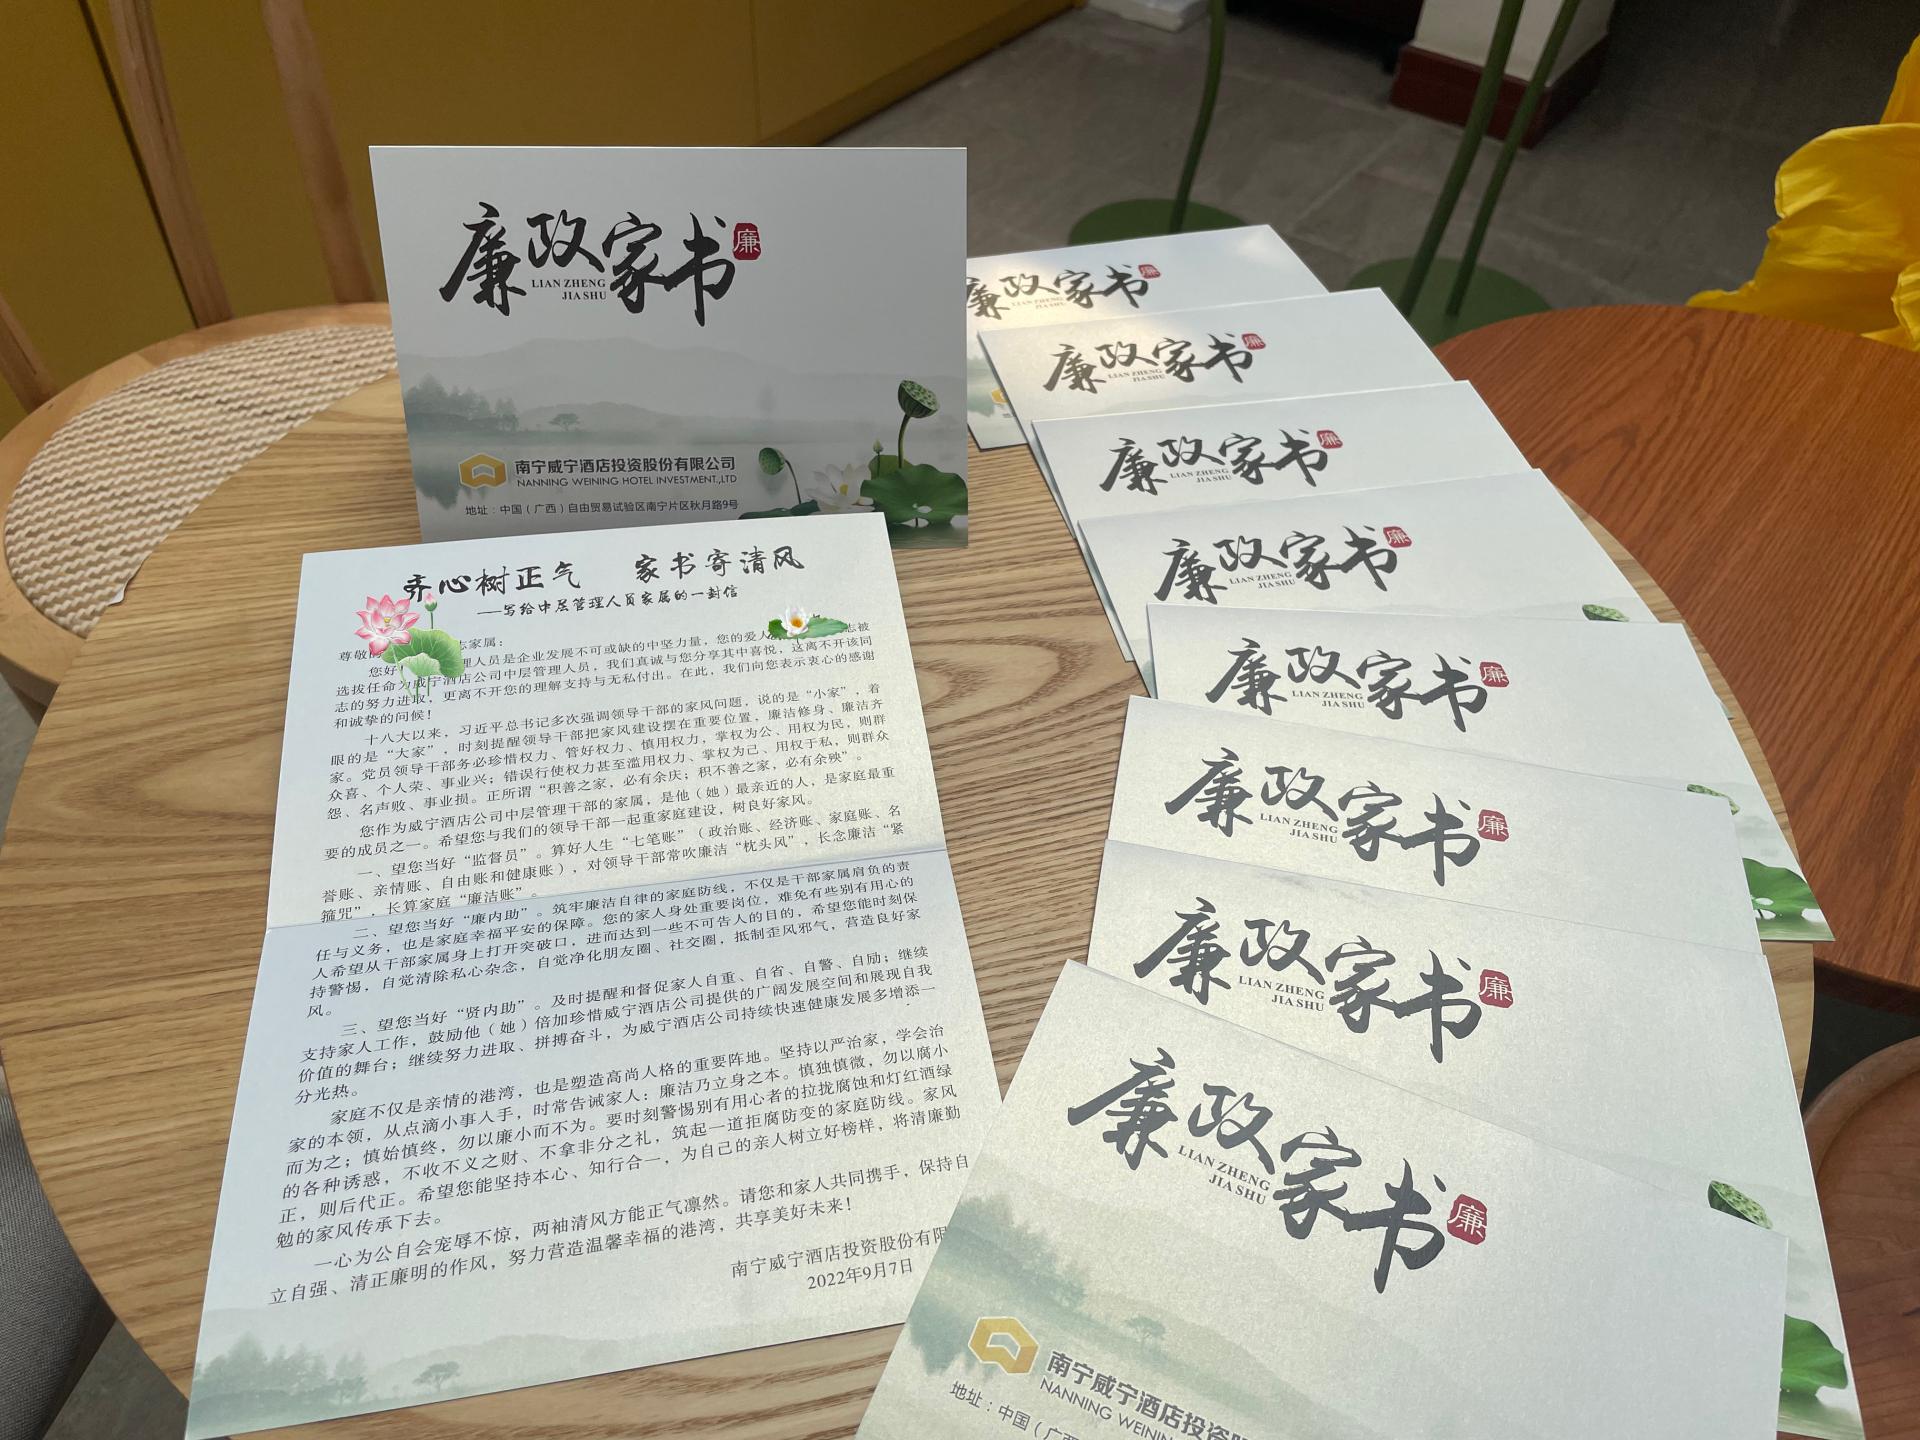 廉政家书
廉
LIAN ZHENG
JIA SHU
南宁威宁酒店投资股份有限公司
NANNING WEINING HOTEL INVESTMENT.,LTD
地址：中国（广西）自由贸易试验区南宁片区秋月路9号
齐心树正气 家书寄清风
——写给中层管理人员家属的一封信
尊敬的 志家属：
您好！ 理人员是企业发展不可或缺的中坚力量，您的爱人 志被
选拔任命为威宁酒店公司中层管理人员，我们真诚与您分享其中喜悦，这离不开该同
志的努力进取，更离不开您的理解支持与无私付出。在此，我们向您表示衷心的感谢
和诚挚的问候！
十八大以来，习近平总书记多次强调领导干部的家风问题，说的是“小家”，着
眼的是“大家”，时刻提醒领导干部把家风建设摆在重要位置，廉洁修身、廉洁齐
家。党员领导干部务必珍惜权力、管好权力、慎用权力，掌权为公、用权为民，则群
众喜、个人荣、事业兴；错误行使权力甚至滥用权力、掌权为己、用权于私，则群众
怨、名声败、事业损。正所谓“积善之家，必有余庆；积不善之家，必有余殃”。
您作为威宁酒店公司中层管理干部的家属，是他（她）最亲近的人，是家庭最重
要的成员之一。希望您与我们的领导干部一起重家庭建设，树良好家风。
一、望您当好“监督员”。算好人生“七笔账”（政治账、经济账、家庭账、名
誉账、亲情账、自由账和健康账），对领导干部常吹廉洁“枕头风”，长念廉洁“紧
箍咒”，长算家庭“廉洁账”。
二、望您当好“廉内助”。筑牢廉洁自律的家庭防线，不仅是干部家属肩负的责
任与义务，也是家庭幸福平安的保障。您的家人身处重要岗位，难免有些别有用心的
人希望从干部家属身上打开突破口，进而达到一些不可告人的目的，希望您能时刻保
持警惕，自觉清除私心杂念，自觉净化朋友圈、社交圈，抵制歪风邪气，营造良好家
风。
三、望您当好“贤内助”。及时提醒和督促家人自重、自省、自警、自励；继续
支持家人工作，鼓励他（她）倍加珍惜威宁酒店公司提供的广阔发展空间和展现自我
价值的舞台；继续努力进取、拼搏奋斗，为威宁酒店公司持续快速健康发展多增添一
分光热。
家庭不仅是亲情的港湾，也是塑造高尚人格的重要阵地。坚持以严治家，学会治
家的本领，从点滴小事入手，时常告诫家人：廉洁乃立身之本。慎独慎微，勿以腐小
而为之；慎始慎终，勿以廉小而不为。要时刻警惕别有用心者的拉拢腐蚀和灯红酒绿
的各种诱惑，不收不义之财、不拿非分之礼，筑起一道拒腐防变的家庭防线。家风
正，则后代正。希望您能坚持本心、知行合一，为自己的亲人树立好榜样，将清廉勤
勉的家风传承下去。
一心为公自会宠辱不惊，两袖清风方能正气凛然。请您和家人共同携手，保持自
立自强、清正廉明的作风，努力营造温馨幸福的港湾，共享美好未来！
南宁威宁酒店投资股份有限
2022年9月7日
廉政家书
廉
LIAN ZHENG
JIA SHU
廉政家书
廉
LIAN ZHENG
JIA SHU
廉政家书
廉
LIAN ZHENG
JIA SHU
廉政家书
廉
LIAN ZHENG
JIA SHU
廉政家书
廉
LIAN ZHENG
JIA SHU
廉政家书
廉
LIAN ZHENG
JIA SHU
廉政家书
廉
LIAN ZHENG
JIA SHU
廉政家书
廉
LIAN ZHENG
JIA SHU
南宁威宁酒店投资
NANNING WEININ
地址：中国（广